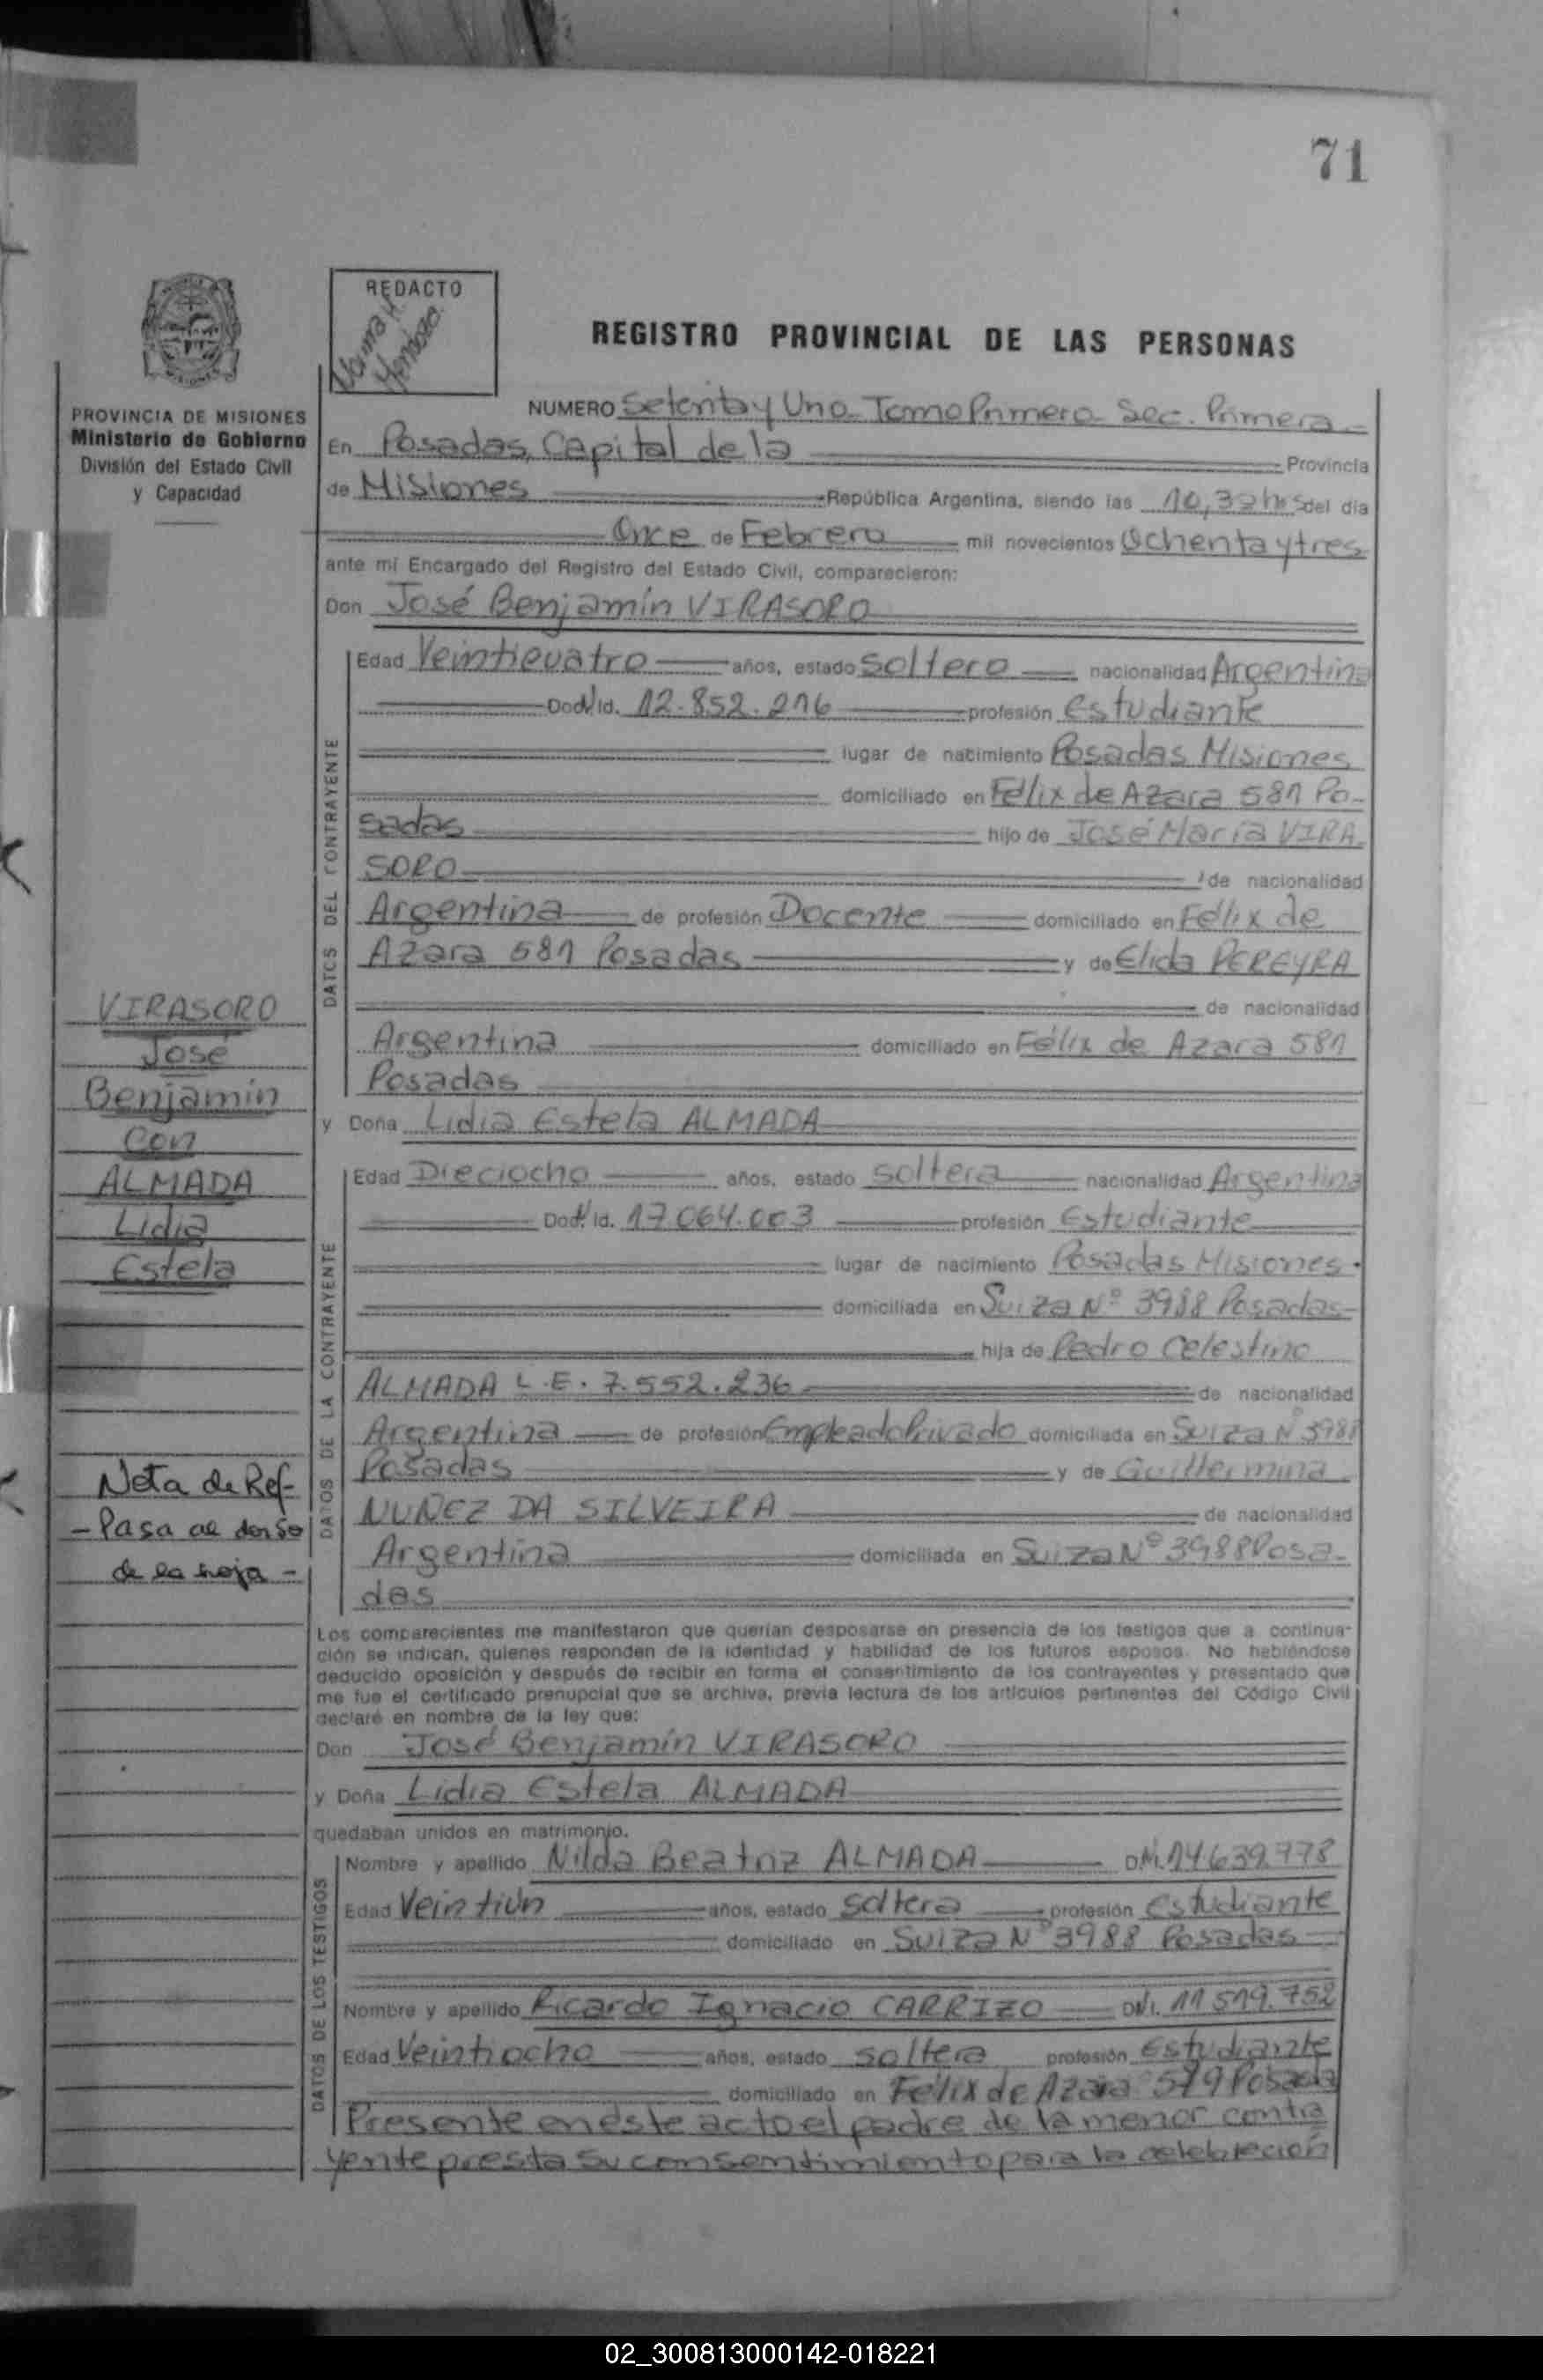 71
REDACTO
Norma H.
Mendoza
REGISTRO PROVINCIAL DE LAS PERSONAS
PROVINCIA DE MISIONES
Ministerio de Gobierno
División del Estado Civil
y Capacidad
NUMERO Setenta y Uno Tomo Primero Sec. Primera
En Posadas, Capital de la Provincia
de Misiones República Argentina, siendo las 10,30 hrs del día
Once de Febrero mil novecientos Ochenta y tres
ante mí Encargado del Registro del Estado Civil, comparecieron:
Don José Benjamín VIRASORO
DATOS DEL CONTRAYENTE
Edad Veinticuatro años, estado soltero nacionalidad Argentina
Doc. Id. 12.852.216 profesión estudiante
lugar de nacimiento Posadas Misiones
domiciliado en Félix de Azara 581 Po-
sadas hijo de José María VIRA
SORO de nacionalidad
Argentina de profesión Docente domiciliado en Félix de
Azara 581 Posadas y de Elida PEREYRA
de nacionalidad
Argentina domiciliado en Félix de Azara 581
Posadas
y Doña Lidia Estela ALMADA
DATOS DE LA CONTRAYENTE
Edad Dieciocho años, estado soltera nacionalidad Argentina
Doc. Id. 17.064.003 profesión Estudiante
lugar de nacimiento Posadas Misiones.
domiciliada en Suiza Nº 3988 Posadas
hija de Pedro Celestino
ALMADA L.E. 7.552.236 de nacionalidad
Argentina de profesión Empleado Privado domiciliada en Suiza Nº 3988
Posadas y de Guillermina
NUÑEZ DA SILVEIRA de nacionalidad
Argentina domiciliada en Suiza Nº 3988 Posa-
das
VIRASORO
José
Benjamín
Con
ALMADA
Lidia
Estela
Nota de Ref-
- Pasa al dorso
de la hoja -
Los comparecientes me manifestaron que querían desposarse en presencia de los testigos que a continua-
ción se indican, quienes responden de la identidad y habilidad de los futuros esposos. No habiéndose
deducido oposición y después de recibir en forma el consentimiento de los contrayentes y presentado que
me fue el certificado prenupcial que se archiva, previa lectura de los artículos pertinentes del Código Civil
declaré en nombre de la ley que:
Don José Benjamín VIRASORO
y Doña Lidia Estela ALMADA
quedaban unidos en matrimonio.
DATOS DE LOS TESTIGOS
Nombre y apellido Nilda Beatriz ALMADA DNI. 14.639.778
Edad Veintiún años, estado soltera profesión estudiante
domiciliado en Suiza Nº 3988 Posadas
Nombre y apellido Ricardo Ignacio CARRIZO DNI. 11.519.752
Edad Veintiocho años, estado soltera profesión Estudiante
domiciliado en Félix de Azara 579 Posada
Presente en éste acto el padre de la menor contra
yente presta su consentimiento para la celebración
02_300813000142-018221